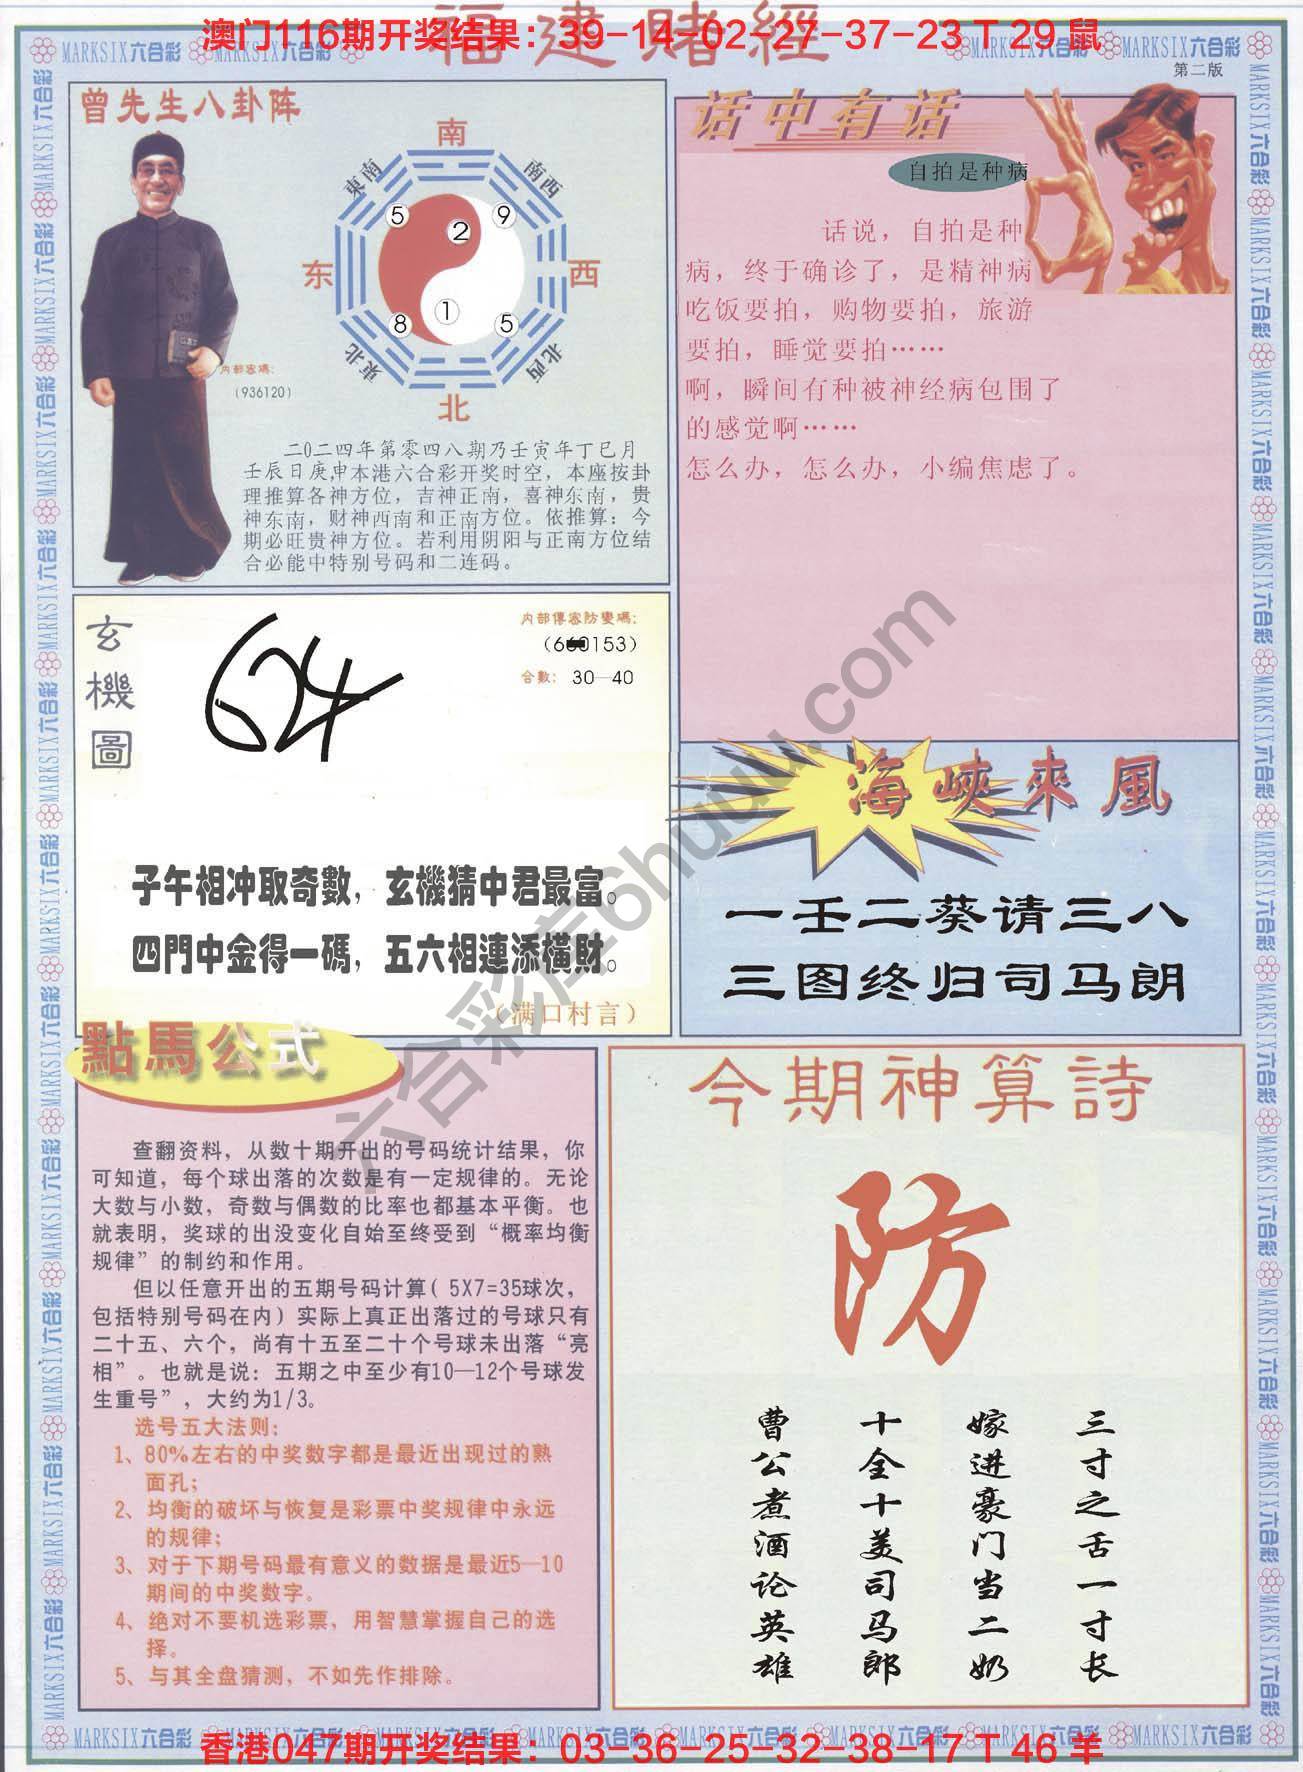 福建賭經
澳门116期开奖结果：39-14-02-27-37-23 T 29 鼠
MARKSIX六合彩
第二版
曾先生八卦阵
南
東南
南西
5
2
9
东
西
8
1
5
東北
北西
北
内部密碼:
(936120)
二0二四年第零四八期乃壬寅年丁巳月
壬辰日庚申本港六合彩开奖时空，本座按卦
理推算各神方位，吉神正南，喜神东南，贵
神东南，财神西南和正南方位。依推算：今
期必旺贵神方位。若利用阴阳与正南方位结
合必能中特别号码和二连码。
话中有话
自拍是种病
话说，自拍是种
病，终于确诊了，是精神病
吃饭要拍，购物要拍，旅游
要拍，睡觉要拍……
啊，瞬间有种被神经病包围了
的感觉啊……
怎么办，怎么办，小编焦虑了。
玄機圖
内部傳密防變碼:
(660153)
合數: 30—40
624
子午相冲取奇數，玄機猜中君最富。
四門中金得一碼，五六相連添橫財。
（满口村言）
海峽來風
一壬二葵请三八
三图终归司马朗
點馬公式
查翻资料，从数十期开出的号码统计结果，你
可知道，每个球出落的次数是有一定规律的。无论
大数与小数，奇数与偶数的比率也都基本平衡。也
就表明，奖球的出没变化自始至终受到“概率均衡
规律”的制约和作用。
但以任意开出的五期号码计算( 5X7=35球次,
包括特别号码在内）实际上真正出落过的号球只有
二十五、六个，尚有十五至二十个号球未出落“亮
相”。也就是说：五期之中至少有10—12个号球发
生重号”，大约为1/3。
选号五大法则:
1、80%左右的中奖数字都是最近出现过的熟
面孔;
2、均衡的破坏与恢复是彩票中奖规律中永远
的规律;
3、对于下期号码最有意义的数据是最近5—10
期间的中奖数字。
4、绝对不要机选彩票，用智慧掌握自己的选
择。
5、与其全盘猜测，不如先作排除。
今期神算詩
防
三寸之舌一寸长
嫁进豪门当二奶
十全十美司马郎
曹公煮酒论英雄
六合彩库6huuu.com
香港047期开奖结果：03-36-25-32-38-17 T 46 羊